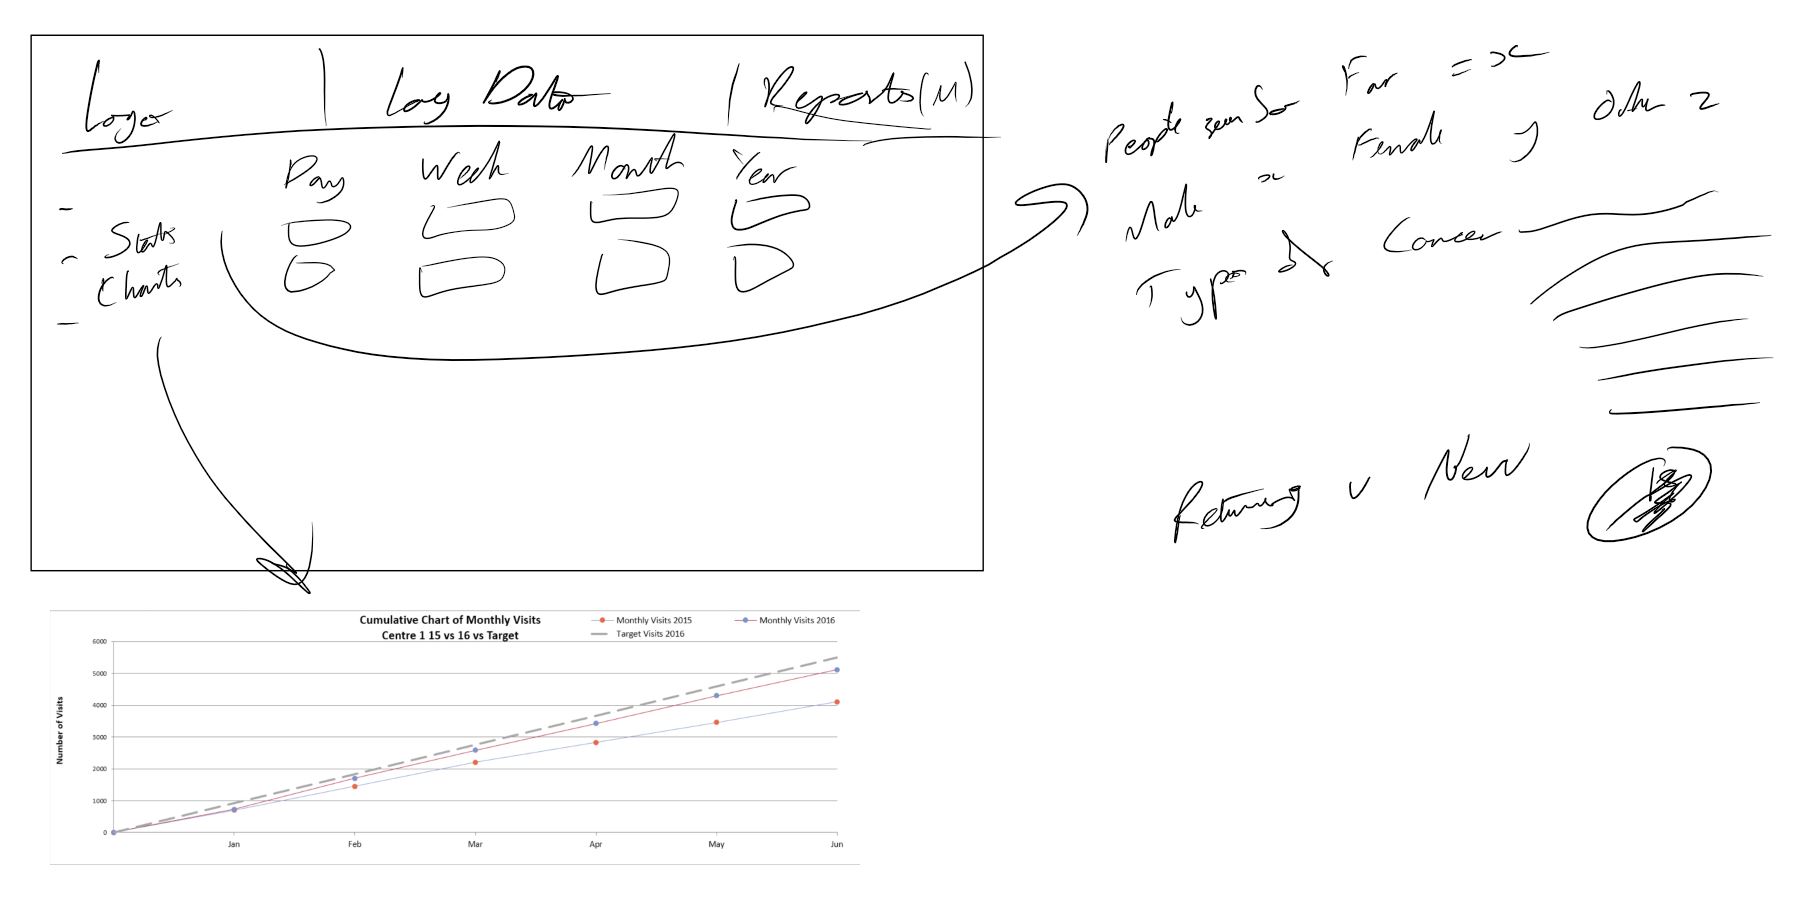 Logo | Log Data | Reports (M)
Day Week Month Year
- Stats
- Charts
-
People seen So Far = x
Male x Female y Other z
Types of Cancer
Returning v New
Cumulative Chart of Monthly Visits
Centre 1 15 vs 16 vs Target
Monthly Visits 2015
Monthly Visits 2016
Target Visits 2016
Number of Visits
6000
5000
4000
3000
2000
1000
0
Jan Feb Mar Apr May Jun